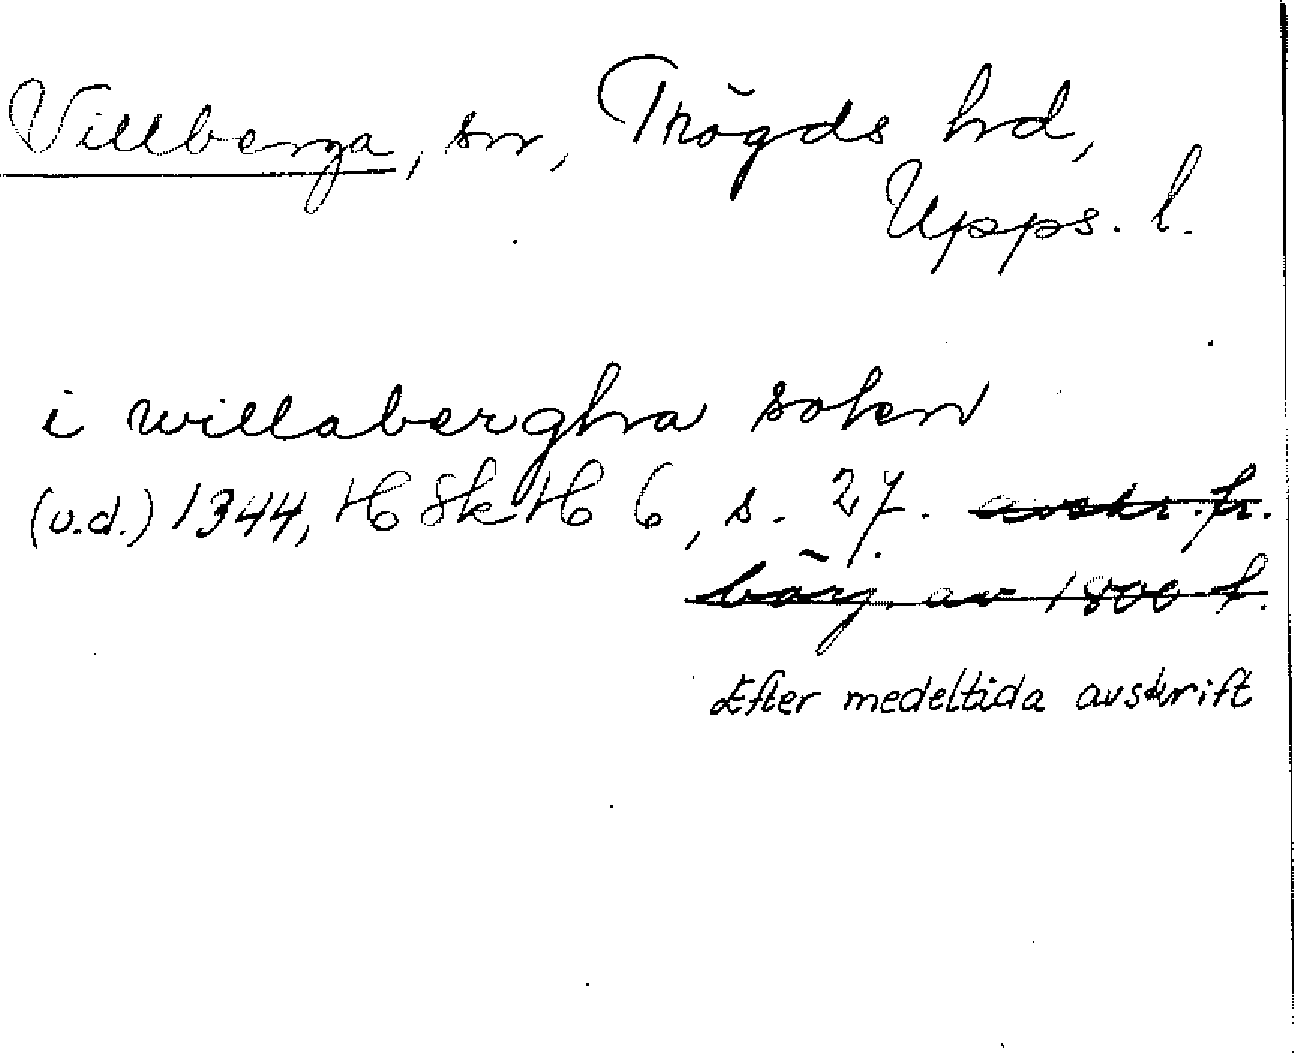 Villberga, sn, Trögds hd,
Upps. l.
i willabergha sokn
(u.d.) 1344, HSkH 6, s. 27. avskr. fr.
börj. av 1800-t.
Efter medeltida avskrift